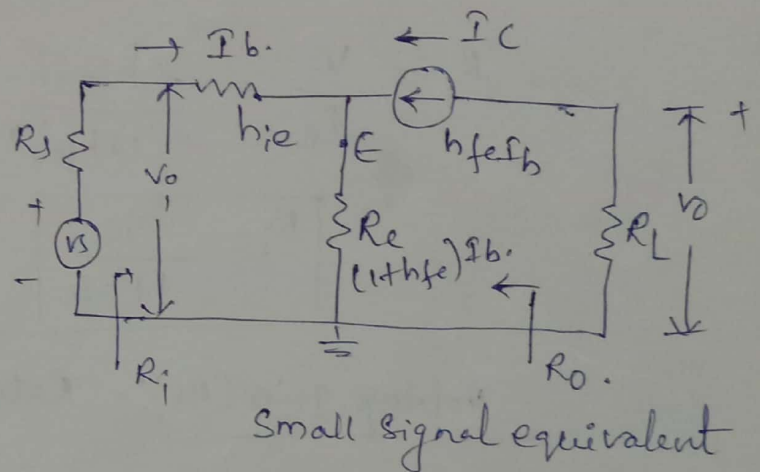 → Ib. ← Ic
Rs hie E hfeIb
+ vo + vo
vs Re RL
- (1+hfe)Ib.
Ri Ro.
Small signal equivalent